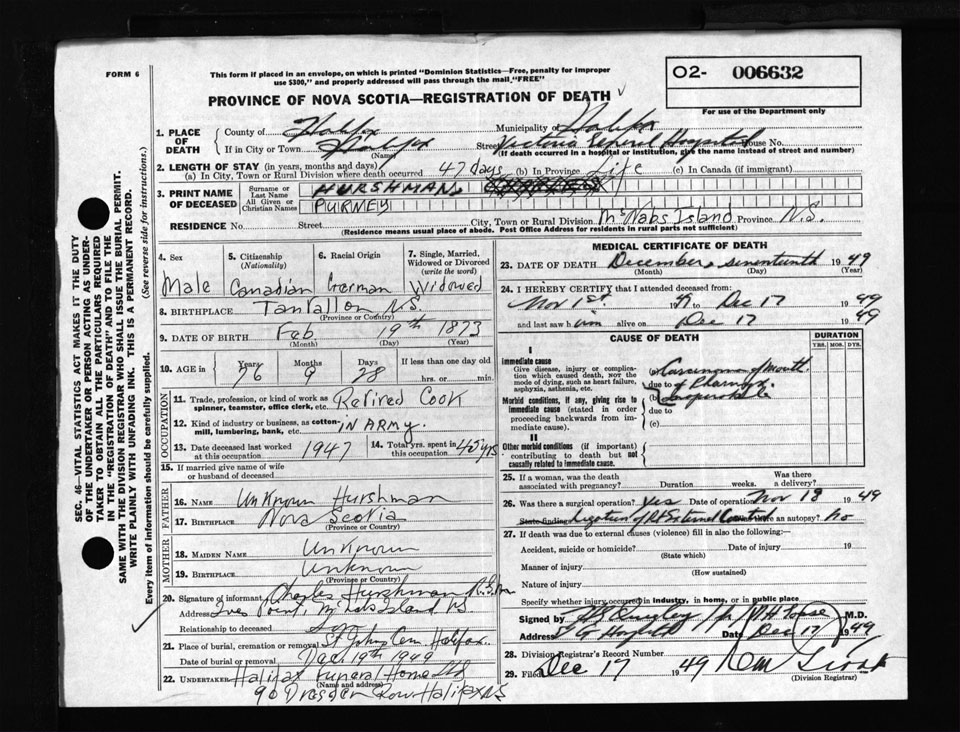 FORM 6
This form if placed in an envelope, on which is printed "Dominion Statistics—Free, penalty for improper
use $300," and properly addressed will pass through the mail "FREE"
O2- 006632
PROVINCE OF NOVA SCOTIA—REGISTRATION OF DEATH
For use of the Department only
1. PLACE OF DEATH County of Halifax Municipality of Halifax
If in City or Town Halifax (Name) Street Victoria General Hospital House No.
(If death occurred in a hospital or institution, give the name instead of street and number)
2. LENGTH OF STAY (in years, months and days)
(a) In City, Town or Rural Division where death occurred 47 days (b) In Province Life (c) In Canada (if immigrant)
3. PRINT NAME OF DECEASED Surname or Last Name HURSHMAN
All Given or Christian Names PURNEY
RESIDENCE No. Street City, Town or Rural Division McNabs Island Province N.S.
(Residence means usual place of abode. Post Office Address for residents in rural parts not sufficient)
SEC. 46—VITAL STATISTICS ACT MAKES IT THE DUTY
OF THE UNDERTAKER OR PERSON ACTING AS UNDER-
TAKER TO OBTAIN ALL THE PARTICULARS REQUIRED
IN THE "REGISTRATION OF DEATH" AND TO FILE THE
SAME WITH THE DIVISION REGISTRAR WHO SHALL ISSUE THE BURIAL PERMIT.
WRITE PLAINLY WITH UNFADING INK. THIS IS A PERMANENT RECORD.
Every item of information should be carefully supplied. (See reverse side for instructions.)
4. Sex 5. Citizenship (Nationality) 6. Racial Origin 7. Single, Married, Widowed or Divorced (write the word)
Male Canadian German Widowed
8. BIRTHPLACE Tantallon N.S.
(Province or Country)
9. DATE OF BIRTH Feb 19th 1873
(Month) (Day) (Year)
10. AGE in Years Months Days If less than one day old
76 9 28 hrs. or min.
OCCUPATION
11. Trade, profession, or kind of work as spinner, teamster, office clerk, etc. Retired Cook
12. Kind of industry or business, as cotton-mill, lumbering, bank, etc. IN ARMY.
13. Date deceased last worked at this occupation 1947 14. Total yrs. spent in this occupation 45 yrs
15. If married give name of wife or husband of deceased
FATHER
16. NAME Unknown Hurshman
17. BIRTHPLACE Nova Scotia
(Province or Country)
MOTHER
18. MAIDEN NAME Unknown
19. BIRTHPLACE Unknown
(Province or Country)
20. Signature of informant Charles Hurshman
Address Ives Point, McNabs Island NS
Relationship to deceased Son
21. Place of burial, cremation or removal St Johns Cem Halifax.
Date of burial or removal Dec 19th 1949
22. UNDERTAKER Halifax Funeral Home Ltd
(Name and address)
90 Dresden Row Halifax NS
MEDICAL CERTIFICATE OF DEATH
23. DATE OF DEATH December, seventeenth 1949
(Month) (Day) (Year)
24. I HEREBY CERTIFY that I attended deceased from:
Nov 1st. 1949 to Dec 17 1949
and last saw him alive on Dec 17 1949
CAUSE OF DEATH DURATION
YRS. MOS. DYS.
I
Immediate cause
Give disease, injury or complication which caused death, NOT the mode of dying, such as heart failure, asphyxia, asthenia, etc.
(a) Carcinoma of Mouth
due to & Pharnyx
Morbid conditions, if any, giving rise to immediate cause (stated in order proceeding backwards from immediate cause).
(b) Inoperable
due to
(c)
II
Other morbid conditions (if important) contributing to death but not causally related to immediate cause.
25. If a woman, was the death associated with pregnancy? Duration weeks. Was there a delivery?
26. Was there a surgical operation? Yes Date of operation Nov 18 1949
State finding Ligation of Rt External Carotid Was there an autopsy? No
27. If death was due to external causes (violence) fill in also the following:—
Accident, suicide or homicide? Date of injury 19
(State which)
Manner of injury
(How sustained)
Nature of injury
Specify whether injury occurred in industry, in home, or in public place
Signed by M.D.
Address Date Dec 17 1949
28. Division Registrar's Record Number
29. Filed Dec 17 1949
(Division Registrar)